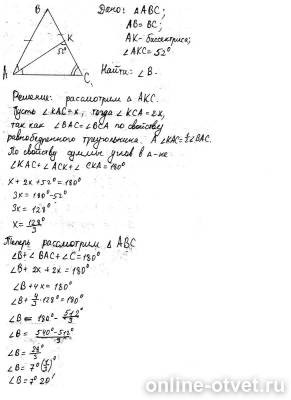 B
K
52°
A
C
Дано: △ABC;
AB = BC;
AK - биссектриса;
∠AKC = 52°
Найти: ∠B -
Решение: рассмотрим △ AKC.
Пусть ∠KAC = x, тогда ∠KCA = 2x,
так как ∠BAC = ∠BCA по свойству
равнобедренного треугольника. А ∠KAC = ½∠BAC.
По свойству суммы углов в △-ке
∠KAC + ∠ACK + ∠CKA = 180°
x + 2x + 52° = 180°
3x = 180° - 52°
3x = 128°
x = 128°/3
Теперь рассмотрим △ ABC
∠B + ∠BAC + ∠C = 180°
∠B + 2x + 2x = 180°
∠B + 4x = 180°
∠B + 4/3 · 128° = 180°
∠B = 180° - 512°/3
∠B = 540° - 512°/3
∠B = 28°/3
∠B =
∠B =
online-otvet.ru